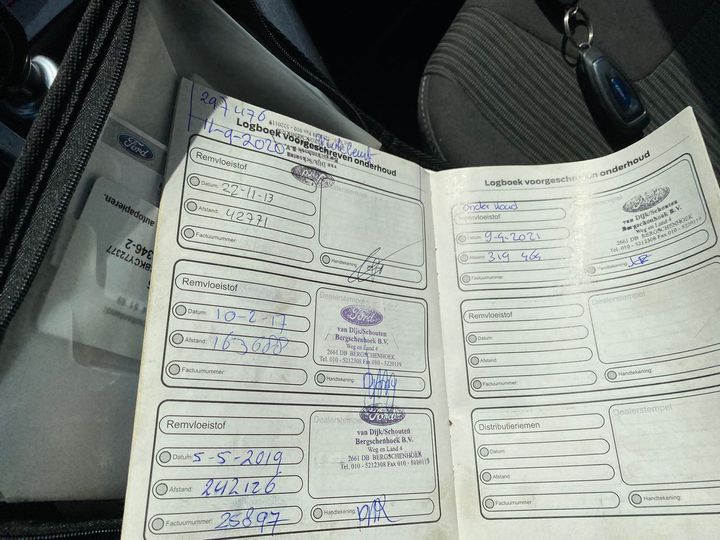 297476
11-9-2020
Logboek voorgeschreven onderhoud
Remvloeistof
Datum: 22-11-13
Afstand: 42771
Factuurnummer:
Handtekening:
Remvloeistof
Datum: 10-2-17
Afstand: 163688
Factuurnummer:
Dealerstempel
Ford
van Dijk/Schouten
Bergschenhoek B.V.
Weg en Land 4
2661 DB BERGSCHENHOEK
Tel. 010 - 5212308 Fax 010 - 5220119
Handtekening:
Remvloeistof
Datum: 5-5-2019
Afstand: 242126
Factuurnummer: 25897
Ford
van Dijk/Schouten
Bergschenhoek B.V.
Weg en Land 4
2661 DB BERGSCHENHOEK
Tel. 010 - 5212308 Fax 010 - 5220119
Handtekening:
Logboek voorgeschreven onderhoud
onderhoud
Remvloeistof
Datum: 9-4-2021
Afstand: 319 464
Factuurnummer:
van Dijk/Schouten
Bergschenhoek B.V.
Weg en Land 4
2661 DB BERGSCHENHOEK
Tel. 010 - 5212308 Fax 010 - 5220119
Handtekening:
Remvloeistof
Datum:
Afstand:
Factuurnummer:
Dealerstempel
Handtekening:
Distributieriemen
Datum:
Afstand:
Factuurnummer:
Dealerstempel
Handtekening:
Ford
autopapieren.
346-2